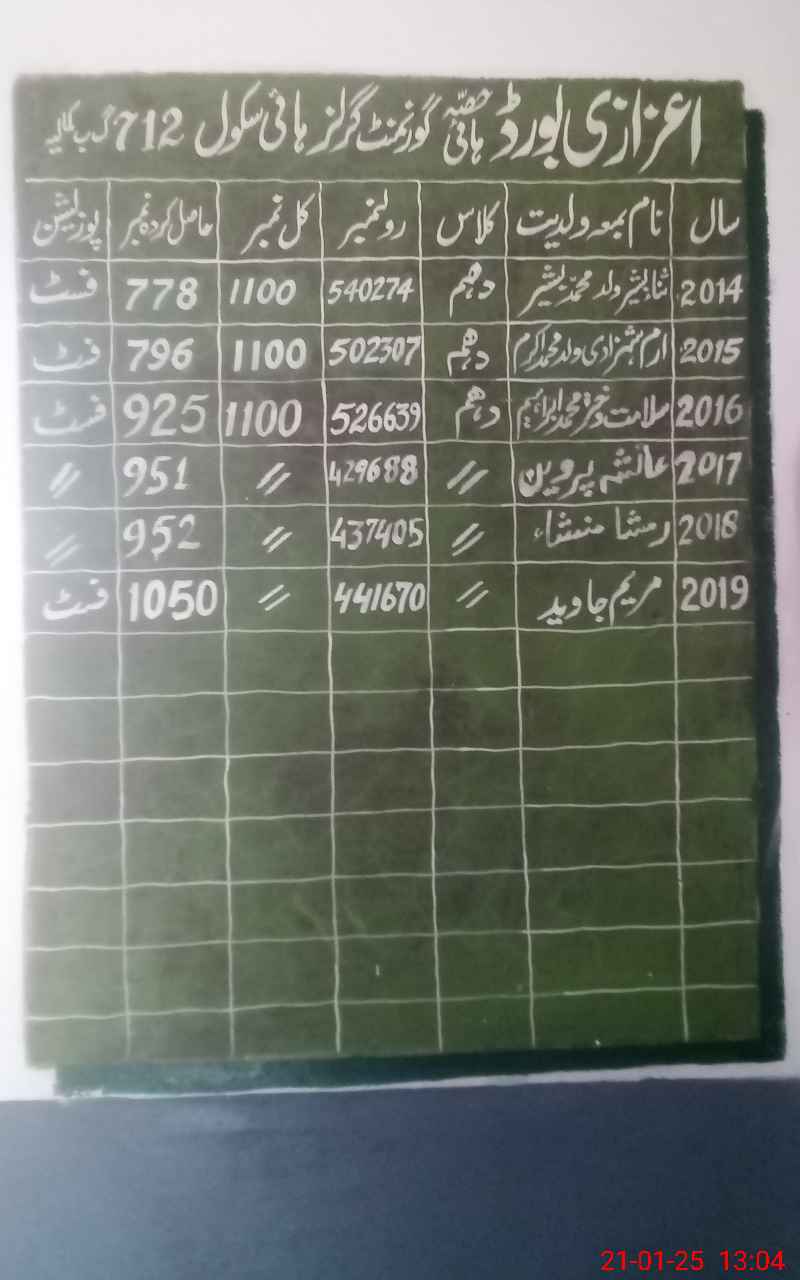 اعزازی بورڈ حصّہ ہائی گورنمنٹ گرلز ہائی سکول 712 گ ب کمالیہ
سال نام بمعہ ولدیت کلاس رولنمبر کل نمبر حاصل کردہ نمبر پوزیشن
2014 ثنا بشیر ولد محمد بشیر دہم 540274 1100 778 فسٹ
2015 ارم شہزادی ولد محمد اکرم دہم 502307 1100 796 فسٹ
2016 سلامت دختر محمد ابراہیم دہم 526639 1100 925 فسٹ
2017 عائشہ پروین // 429688 // 951 //
2018 رمشا منشاء // 437405 // 952 //
2019 مریم جاوید // 441670 // 1050 فسٹ
21-01-25 13:04